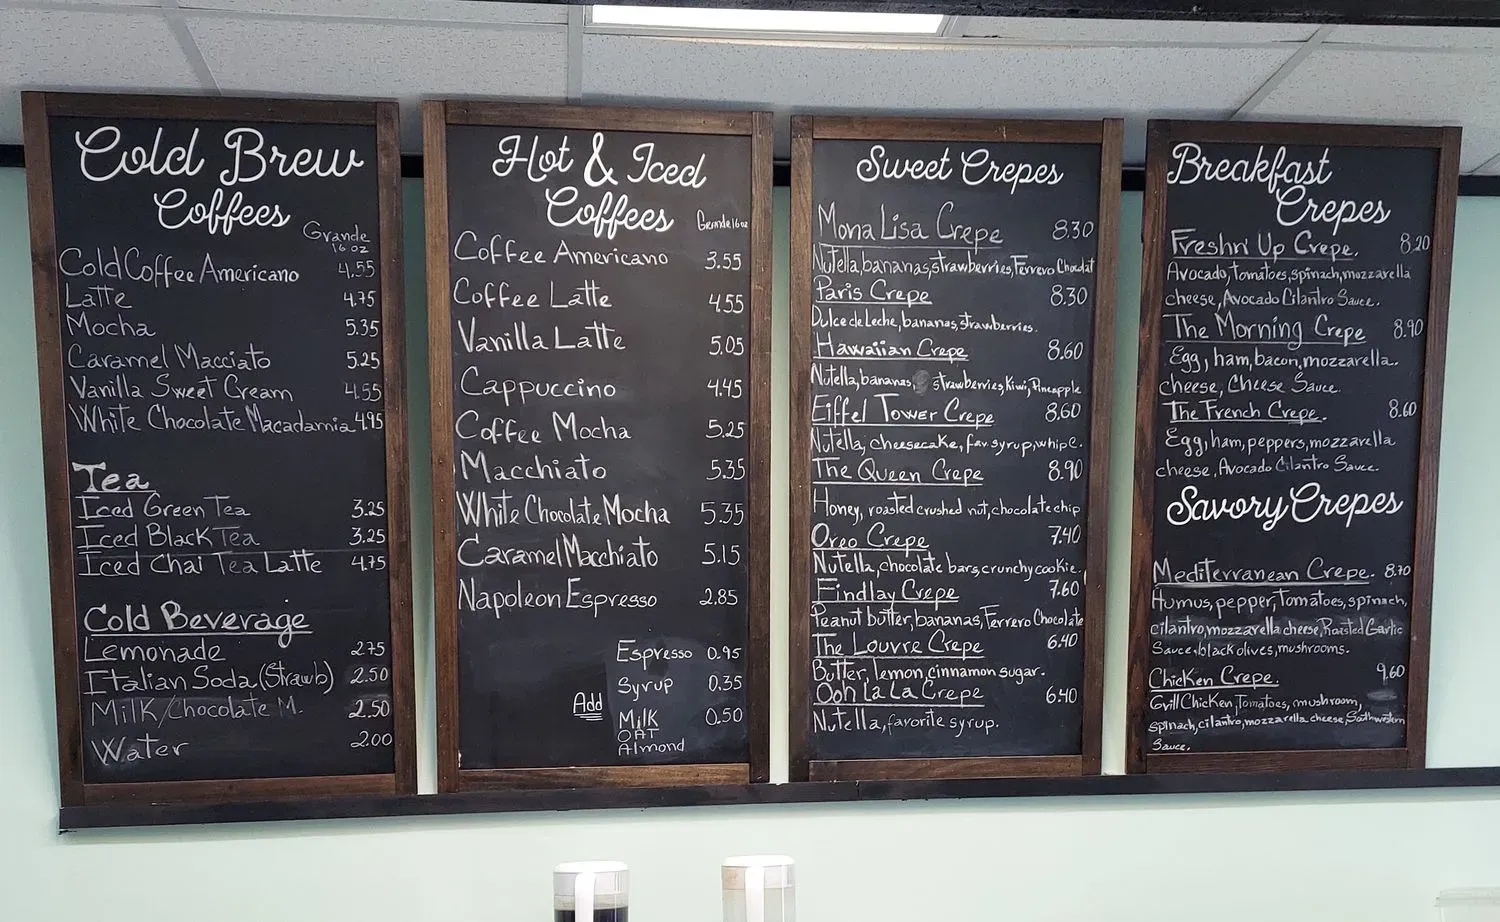 Cold Brew
Coffees
Grande
16 oz
Cold Coffee Americano 4.55
Latte 4.75
Mocha 5.35
Caramel Macciato 5.25
Vanilla Sweet Cream 4.55
White Chocolate Macadamia 4.95
Tea
Iced Green Tea 3.25
Iced Black Tea 3.25
Iced Chai Tea Latte 4.75
Cold Beverage
Lemonade 2.75
Italian Soda (Strawb) 2.50
Milk/Chocolate M. 2.50
Water 2.00
Hot & Iced
Coffees
Grande 16 oz
Coffee Americano 3.55
Coffee Latte 4.55
Vanilla Latte 5.05
Cappuccino 4.45
Coffee Mocha 5.25
Macchiato 5.35
White Chocolate Mocha 5.35
Caramel Macchiato 5.15
Napoleon Espresso 2.85
Espresso 0.95
Syrup 0.35
Add
Milk 0.50
OAT
Almond
Sweet Crepes
Mona Lisa Crepe 8.30
Nutella, bananas, strawberries, Ferrero Chocolat
Paris Crepe 8.30
Dulce de Leche, bananas, strawberries.
Hawaiian Crepe 8.60
Nutella, bananas, strawberries, Kiwi, Pineapple
Eiffel Tower Crepe 8.60
Nutella, cheesecake, fav syrup, whip c.
The Queen Crepe 8.90
Honey, roasted crushed nut, chocolate chip
Oreo Crepe 7.40
Nutella, chocolate bars, crunchy cookie.
Findlay Crepe 7.60
Peanut butter, bananas, Ferrero Chocolate
The Louvre Crepe 6.40
Butter, lemon, cinnamon sugar.
Ooh La La Crepe 6.40
Nutella, favorite syrup.
Breakfast
Crepes
Freshn' Up Crepe. 8.20
Avocado, tomatoes, spinach, mozzarella
cheese, Avocado Cilantro Sauce.
The Morning Crepe 8.90
Egg, ham, bacon, mozzarella.
cheese, Cheese Sauce.
The French Crepe. 8.60
Egg, ham, peppers, mozzarella
cheese, Avocado Cilantro Sauce.
Savory Crepes
Mediterranean Crepe. 8.70
Humus, pepper, Tomatoes, spinach,
cilantro, mozzarella cheese, Roasted Garlic
Sauce, black olives, mushrooms.
Chicken Crepe. 9.60
Grill Chicken, Tomatoes, mushroom,
spinach, cilantro, mozzarella cheese, Southwestern
Sauce.